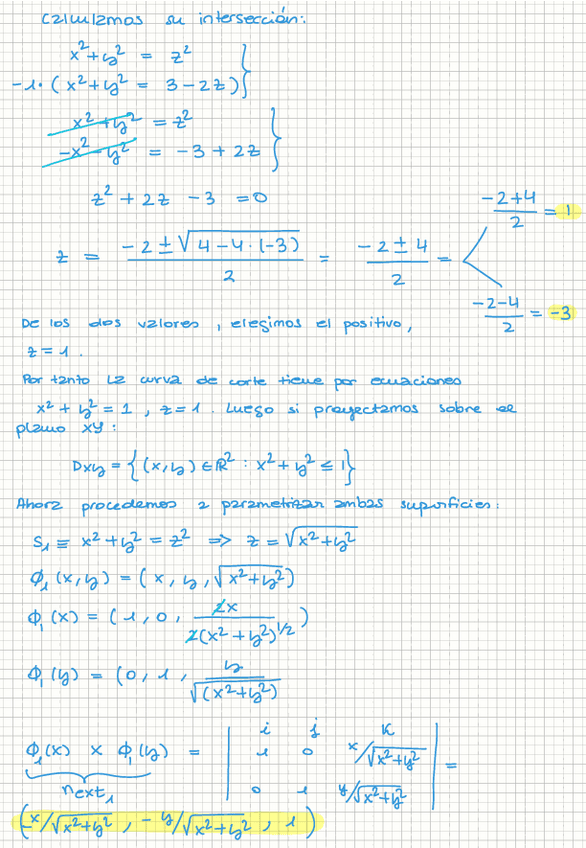 Calculamos su intersección:
x² + y² = z²
-1·(x² + y² = 3 - 2z)
x² + y² = z²
-x² - y² = -3 + 2z
z² + 2z - 3 = 0
z = (-2 ± √(4 - 4·(-3)))/2 = (-2 ± 4)/2 =
(-2+4)/2 = 1
(-2-4)/2 = -3
De los dos valores, elegimos el positivo,
z = 1.
Por tanto la curva de corte tiene por ecuaciones
x² + y² = 1, z = 1. Luego si proyectamos sobre el
plano XY:
Dxy = {(x,y) ∈ ℝ² : x² + y² ≤ 1}
Ahora procedemos a parametrizar ambas superficies:
S₁ ≡ x² + y² = z² => z = √(x² + y²)
Φ₁(x,y) = (x, y, √(x² + y²))
Φ₁(x) = (1, 0, 2x/2(x² + y²)^1/2)
Φ₁(y) = (0, 1, y/√(x² + y²))
i j k
Φ₁(x) × Φ₁(y) = | 1 0 x/√(x² + y²) | =
next₁ 0 1 y/√(x² + y²)
(-x/√(x² + y²), -y/√(x² + y²), 1)